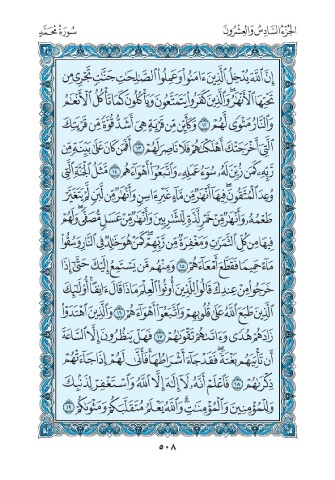 الجزء السادس والعشرون
سورة محمد
إِنَّ ٱللَّهَ يُدۡخِلُ ٱلَّذِينَ ءَامَنُواْ وَعَمِلُواْ ٱلصَّٰلِحَٰتِ جَنَّٰتٖ تَجۡرِي مِن
تَحۡتِهَا ٱلۡأَنۡهَٰرُۖ وَٱلَّذِينَ كَفَرُواْ يَتَمَتَّعُونَ وَيَأۡكُلُونَ كَمَا تَأۡكُلُ ٱلۡأَنۡعَٰمُ
وَٱلنَّارُ مَثۡوٗى لَّهُمۡ ١٢ وَكَأَيِّن مِّن قَرۡيَةٍ هِيَ أَشَدُّ قُوَّةٗ مِّن قَرۡيَتِكَ
ٱلَّتِيٓ أَخۡرَجَتۡكَ أَهۡلَكۡنَٰهُمۡ فَلَا نَاصِرَ لَهُمۡ ١٣ أَفَمَن كَانَ عَلَىٰ بَيِّنَةٖ مِّن
رَّبِّهِۦ كَمَن زُيِّنَ لَهُۥ سُوٓءُ عَمَلِهِۦ وَٱتَّبَعُوٓاْ أَهۡوَآءَهُم ١٤ مَّثَلُ ٱلۡجَنَّةِ ٱلَّتِي
وُعِدَ ٱلۡمُتَّقُونَۖ فِيهَآ أَنۡهَٰرٞ مِّن مَّآءٍ غَيۡرِ ءَاسِنٖ وَأَنۡهَٰرٞ مِّن لَّبَنٖ لَّمۡ يَتَغَيَّرۡ
طَعۡمُهُۥ وَأَنۡهَٰرٞ مِّنۡ خَمۡرٖ لَّذَّةٖ لِّلشَّٰرِبِينَ وَأَنۡهَٰرٞ مِّنۡ عَسَلٖ مُّصَفّٗىۖ وَلَهُمۡ
فِيهَا مِن كُلِّ ٱلثَّمَرَٰتِ وَمَغۡفِرَةٞ مِّن رَّبِّهِمۡۖ كَمَنۡ هُوَ خَٰلِدٞ فِي ٱلنَّارِ وَسُقُواْ
مَآءً حَمِيمٗا فَقَطَّعَ أَمۡعَآءَهُمۡ ١٥ وَمِنۡهُم مَّن يَسۡتَمِعُ إِلَيۡكَ حَتَّىٰٓ إِذَا
خَرَجُواْ مِنۡ عِندِكَ قَالُواْ لِلَّذِينَ أُوتُواْ ٱلۡعِلۡمَ مَاذَا قَالَ ءَانِفًاۚ أُوْلَٰٓئِكَ
ٱلَّذِينَ طَبَعَ ٱللَّهُ عَلَىٰ قُلُوبِهِمۡ وَٱتَّبَعُوٓاْ أَهۡوَآءَهُمۡ ١٦ وَٱلَّذِينَ ٱهۡتَدَوۡاْ
زَادَهُمۡ هُدٗى وَءَاتَىٰهُمۡ تَقۡوَىٰهُمۡ ١٧ فَهَلۡ يَنظُرُونَ إِلَّا ٱلسَّاعَةَ
أَن تَأۡتِيَهُم بَغۡتَةٗۖ فَقَدۡ جَآءَ أَشۡرَاطُهَاۚ فَأَنَّىٰ لَهُمۡ إِذَا جَآءَتۡهُمۡ
ذِكۡرَىٰهُمۡ ١٨ فَٱعۡلَمۡ أَنَّهُۥ لَآ إِلَٰهَ إِلَّا ٱللَّهُ وَٱسۡتَغۡفِرۡ لِذَنۢبِكَ
وَلِلۡمُؤۡمِنِينَ وَٱلۡمُؤۡمِنَٰتِۗ وَٱللَّهُ يَعۡلَمُ مُتَقَلَّبَكُمۡ وَمَثۡوَىٰكُمۡ ١٩
٥٠٨